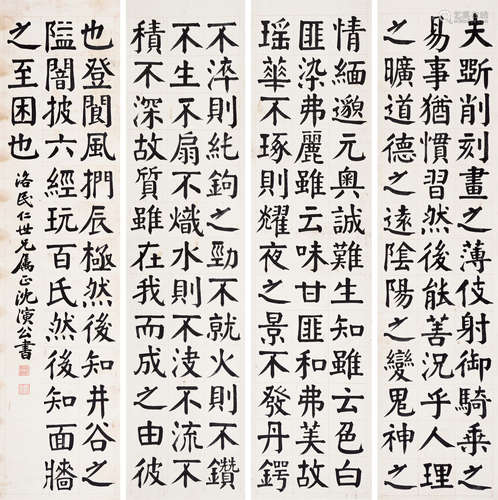 夫斲削刻畫之薄伎射御騎乘之
易事猶慣習然後能善況乎人理
之曠道德之遠陰陽之變鬼神之
情緬邈元奧誠難生知雖云色白
匪染弗麗雖云味甘匪和弗美故
瑤華不琢則耀夜之景不發丹鍔
不淬則純鉤之勁不就火則不鑽
不生不扇不熾水則不决不流不
積不深故質雖在我而成之由彼
也登閬風捫辰極然後知井谷之
隘闇披六經玩百氏然後知面牆
之至困也
洛民仁世兄屬正沈演公書